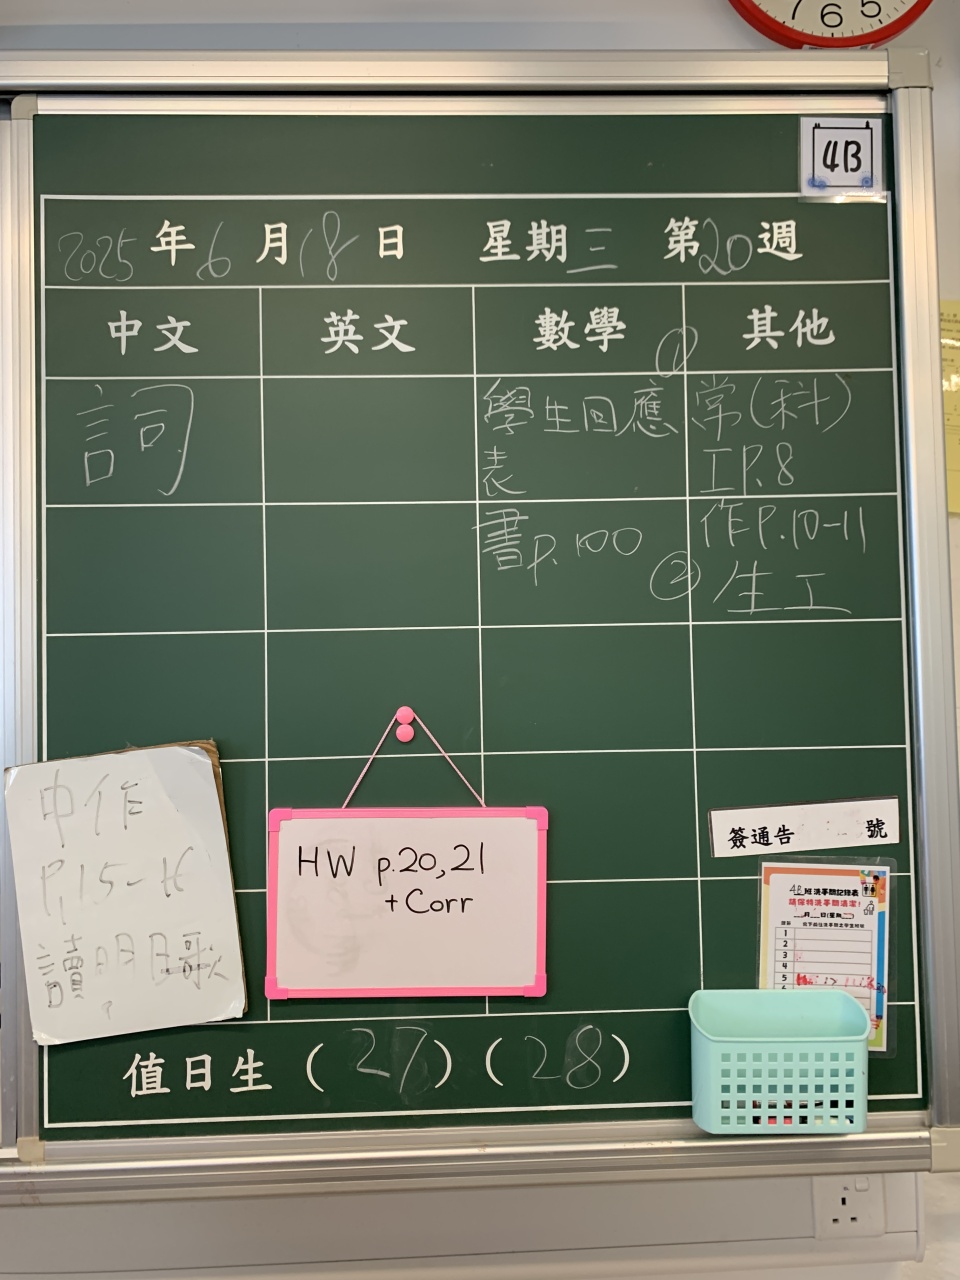 7 6 5
4B
2025年6月18日 星期三 第20週
中文 英文 數學 其他
詞
學生回應
表
書p.100
① 常(科)
工P.8
作P.10-11
② 生工
中作
P.15-16
讀明日歌
HW p.20,21
+ Corr
簽通告 號
4B班洗手間記錄表
請保持洗手間清潔!
月 日(星期 )
1
2
3
4
5
值日生(27)(28)